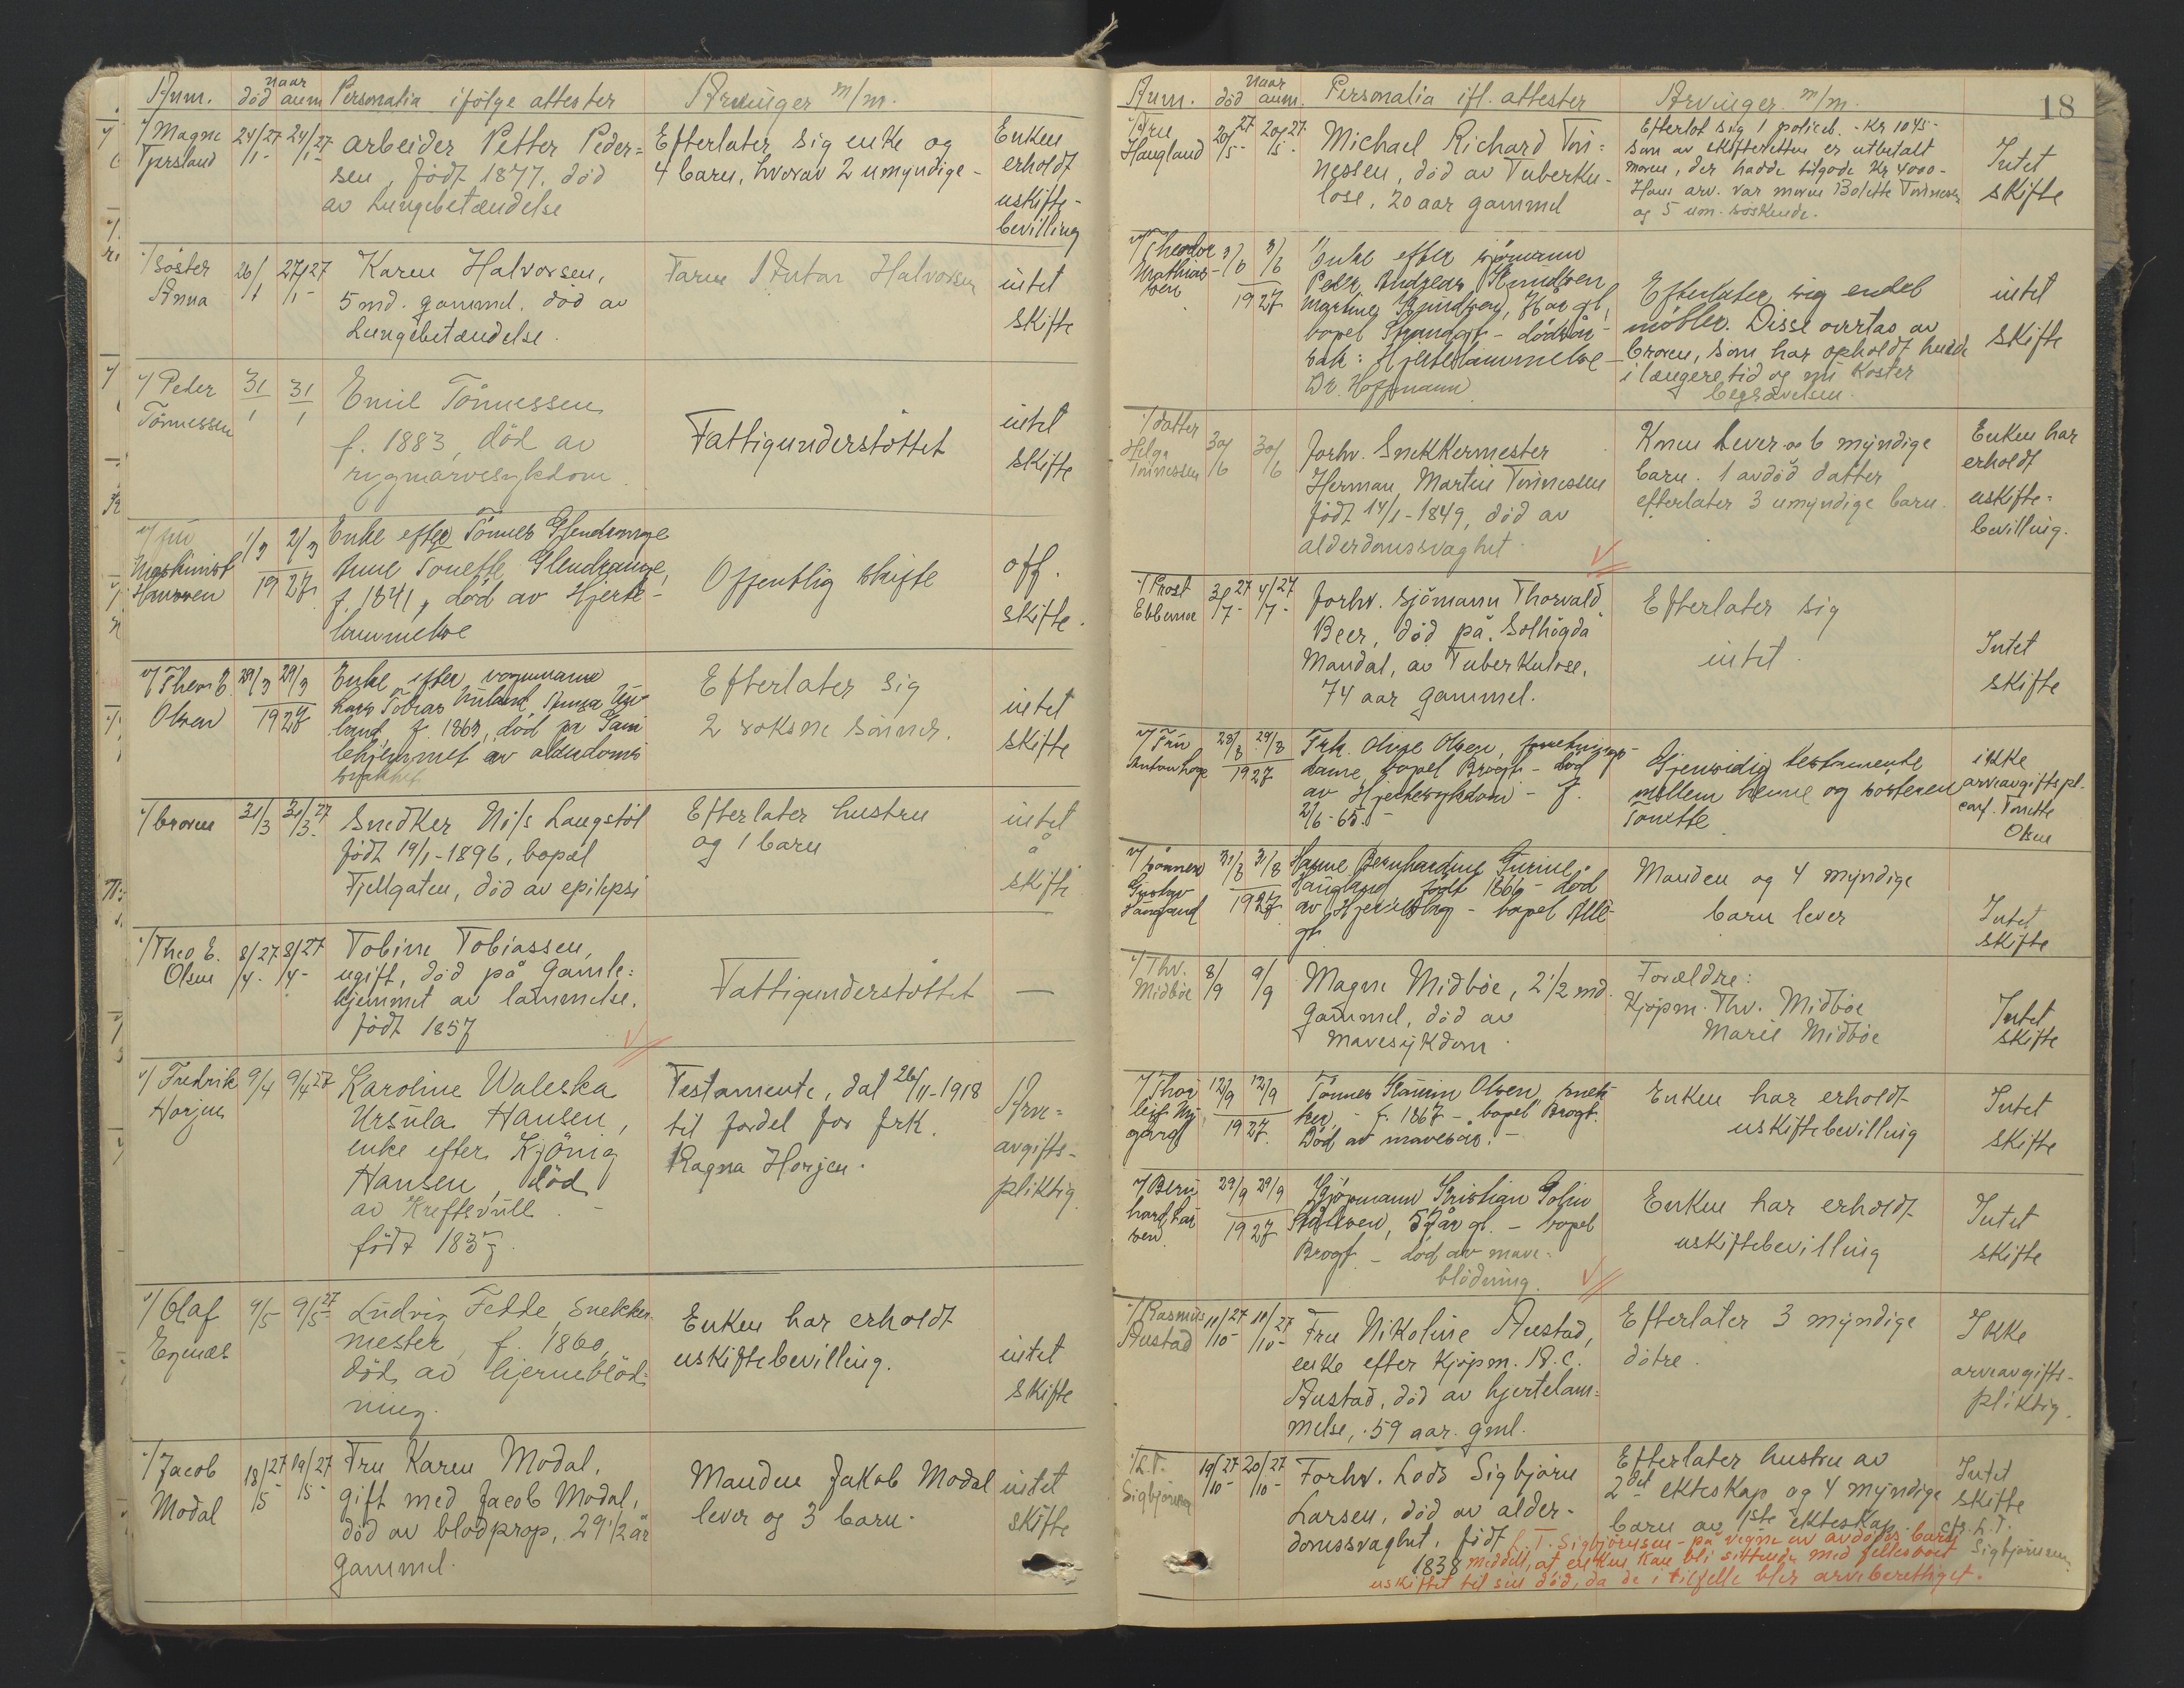 Anm. død Naar anm Personalia ifølge attester Arvinger m/m.
v/ Magne Tjørsland 24/1-27 24/1-27
arbeider Petter Peder=
sen, født 1877, død
av Lungebetændelse
Efterlater sig enke og
4 barn, hvorav 2 umyndige -
Enken
erholdt
uskifte-
bevilling
v/ søster Anna 26/1 27/1-27
Karen Halvorsen,
5 md. gammel, død av
Lungebetændelse.
Faren Anton Halvorsen
intet
skifte
v/ Peder Tönnessen 31/1 31/1
Emil Tönnessen
f. 1883, død av
rygmarvesykdom.
Fattigunderstöttet
intet
skifte
v/ fru Maskinist Hansen 1/3 2/3 1927
Enke efter Tönnes Glendrange
Anne Tonette Glendrange,
f. 1841, död av Hjerte-
lammelse
Offentlig skifte
off.
skifte.
v/ Theo E. Olsen 28/3 29/3 1927
Enke efter vognmand
Lars Tobias
f. 1863, död på Gam
lehjemmet av alderdoms
svakhet
Efterlater sig
2 voksne sönner.
intet
skifte
v/ broren 31/3 31/3-27
Snedker Nils Langstöl
født 19/1-1896, bopæl
Fjellgaten, död av epilepsi
Efterlater hustru
og 1 barn
intet
skifte
v/ Theo E. Olsen 8/4-27 8/4-27
Tobine Tobiassen,
ugift, død på Gamle=
hjemmet av lammelse.
født 1857
Fattigunderstöttet —
v/ Fredrik Horjen 9/4 9/4-27
Karoline Waleska
Ursula Hansen,
enke efter Kjönig
Hansen, død
av Kreftsvull. -
født 1837.
Testamente, dat 26/11-1918
til fordel for frk.
Ragna Horjen.
Arve=
avgifts-
pliktig.
v/ Olaf Egenæs 9/5 9/5-27
Ludvig Fedde, Snekker
mester, f. 1860,
død av hjerneblöd=
ning.
Enken har erholdt
uskiftebevilling.
intet
skifte
v/ Jacob Modal 18/5-27 19/5-27
Fru Karen Modal,
gift med Jacob Modal,
død av blodprop, 29 1/2 år
gammel.
Manden Jakob Modal
lever og 3 barn.
intet
skifte
18
Anm. død Naar anm. Personalia ifl. attester Arvinger m/m.
v/ Fru Haugland 20/5-27 20/5-27
Michael Richard Tön=
nessen, død av Tuberku-
lose, 20 aar gammel
Efterlot sig 1 policeb. - Kr 1045-
som av skifteretten er utbetalt
moren, der hadde tilgode Kr 4000-
Hans arv. var moren Bolette Tönnessen
og 5 um. søskende.
Intet
skifte
v/ Theodor Mathiassen 3/6 3/6 1927
Enke efter sjömann
Peder Andreas Knudsen
Martine Knudsen, år gl,
bopel Strandgt - dödsår-
sak: Hjertelammelse -
Dr. Hoffmann.
Efterlater sig endel
möbler. Disse overtas av
broren, som har opholdt hende
i længere tid og nu koster
begravelsen.
intet
skifte
v/ datter Helga Tönnessen 30/6 30/6
Forhv. Snekkermester
Herman Martin Tönnessen
født 14/1-1849, død av
alderdomssvaghet.
Konen lever og 6 myndige
barn. 1 avdød datter
efterlater 3 umyndige barn.
Enken har
erholdt
uskifte=
bevilling.
v/ Prost Ebbesen 3/7-27 4/7-27
Forhv. sjömann Thorvald
Beer, død på Solhögda
Mandal, av Tuberkulose.
74 aar gammel.
Efterlater sig
intet.
Intet
skifte
v/ Fru Anton Lange 28/8 29/8 1927
Frk. Oline Olsen, forretnings-
dame, bopel Brogt. - död
av Hjertesykdom - f.
2/6-65. -
Gjensidig testamente
mellem henne og søsteren
Tonette
ikke
arveavgiftspl.
conf. Tonette
Olsen
v/ sönnen Gustav Haugland 31/8 31/8 1927
Hanne Bernhardine Gurine
Haugland født 1866 - död
av Hjerteslag - bopel Allé-
gt.
Manden og 4 myndige
barn lever
Intet
skifte
v/ Thv. Midböe 8/9 9/9
Magne Midböe, 2 1/2 md.
gammel, død av
mavesykdom.
Forældre:
Kjöpm. Thv. Midböe
Marie Midböe
Intet
skifte
v/ Thorleif Nygård 12/9 12/9 1927
Tönnes Olsen, snek
ker, - f. 1867 - bopel Brogt.
Död av mavesår. -
Enken har erholdt
uskiftebevilling
Intet
skifte
v/ Bernhard Larsen 29/9 29/9 1927
Kjöpmann Kristian
59 år gl. - bopel
Brogt. - död av mave=
blödning.
Enken har erholdt
uskiftebevilling
Intet
skifte
v/ Rasmus Austad 10/10-27 10/10-27
Fru Nikoline Austad,
enke efter kjöpm. A. C.
Austad, død av hjertelam=
melse, 59 aar. gml.
Efterlater 3 myndige
døtre.
Ikke
arveavgifts-
pliktig.
v/ L. T. Sigbjörnsen 19/10-27 20/10-27
Forhv. Lods Sigbjörn
Larsen, død av alder-
domssvaghet, født
1838
Efterlater hustru av
2det ekteskap og 4 myndige
barn av 1ste ekteskap.
Intet
skifte
cfr. L. T.
Sigbjörnsen
L. T. Sigbjörnsen - på vegne av avdødes barn
meddelt, at enken kan bli sittende med fellesboet
uskiftet til sin död, da de i tilfelle blir arveberettiget.